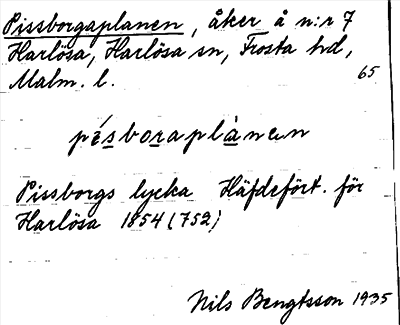 Pissborgaplanen, åker å n:r 7
Harlösa, Harlösa sn, Frosta hd,
Malm. l.
65
pésboraplànen
Pissborgs lycka Häfdefört. för
Harlösa 1854 (752)
Nils Bengtsson 1935